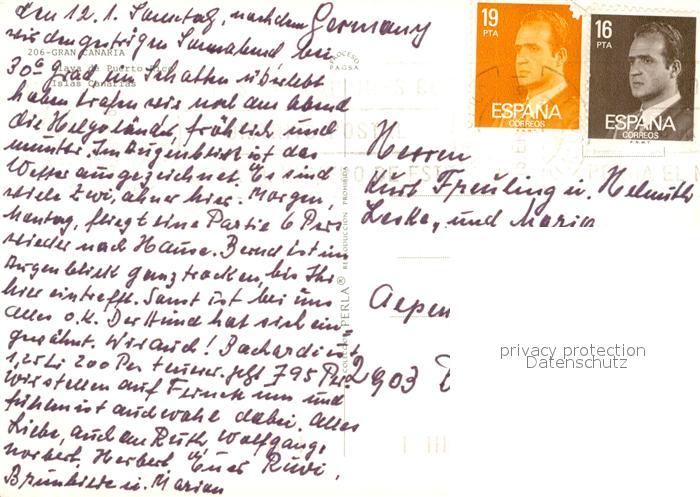 den 12.1. Samstag, nachdem Germany
wir den gestrigen Sonnabend bei
206-GRAN CANARIA
30° Grad im Schatten überlebt
Playa de Puerto Rico
Islas Canarias
haben trafen wir noch am Abend
die Helgoländer, fröhlich und
munter. Im Augenblick ist das
Wetter ausgezeichnet. Es sind
viele hier. Morgen,
Montag, fliegt eine Partie 6 Pers
wieder nach Hause. Bernd ist im
Augenblick ganz trocken, bis Ihr
hier eintrefft. Sonst ist bei uns
alles o.K. Der Hund hat sich ein-
gewöhnt. Wir auch! Bachardi ist
1,25 Li 200 Per teurer. jetzt 795 Per
wir stellen auf um und
fühlen ist auch wohl dabei. Alles
Liebe, auch an Ruth, Wolfgang,
Norbert, Herbert, Euer Rudi,
u. Marian
PROCESO
PAGSA
COLECCION PERLA®
REPRODUCCION PROHIBIDA
19
PTA
ESPAÑA
CORREOS
F.N.M.T.
16
PTA
ESPAÑA
CORREOS
F.N.M.T.
Herren
Kurt Freuling u. Helmuth
Leske, und Maria
Aepen
2903
privacy protection
Datenschutz